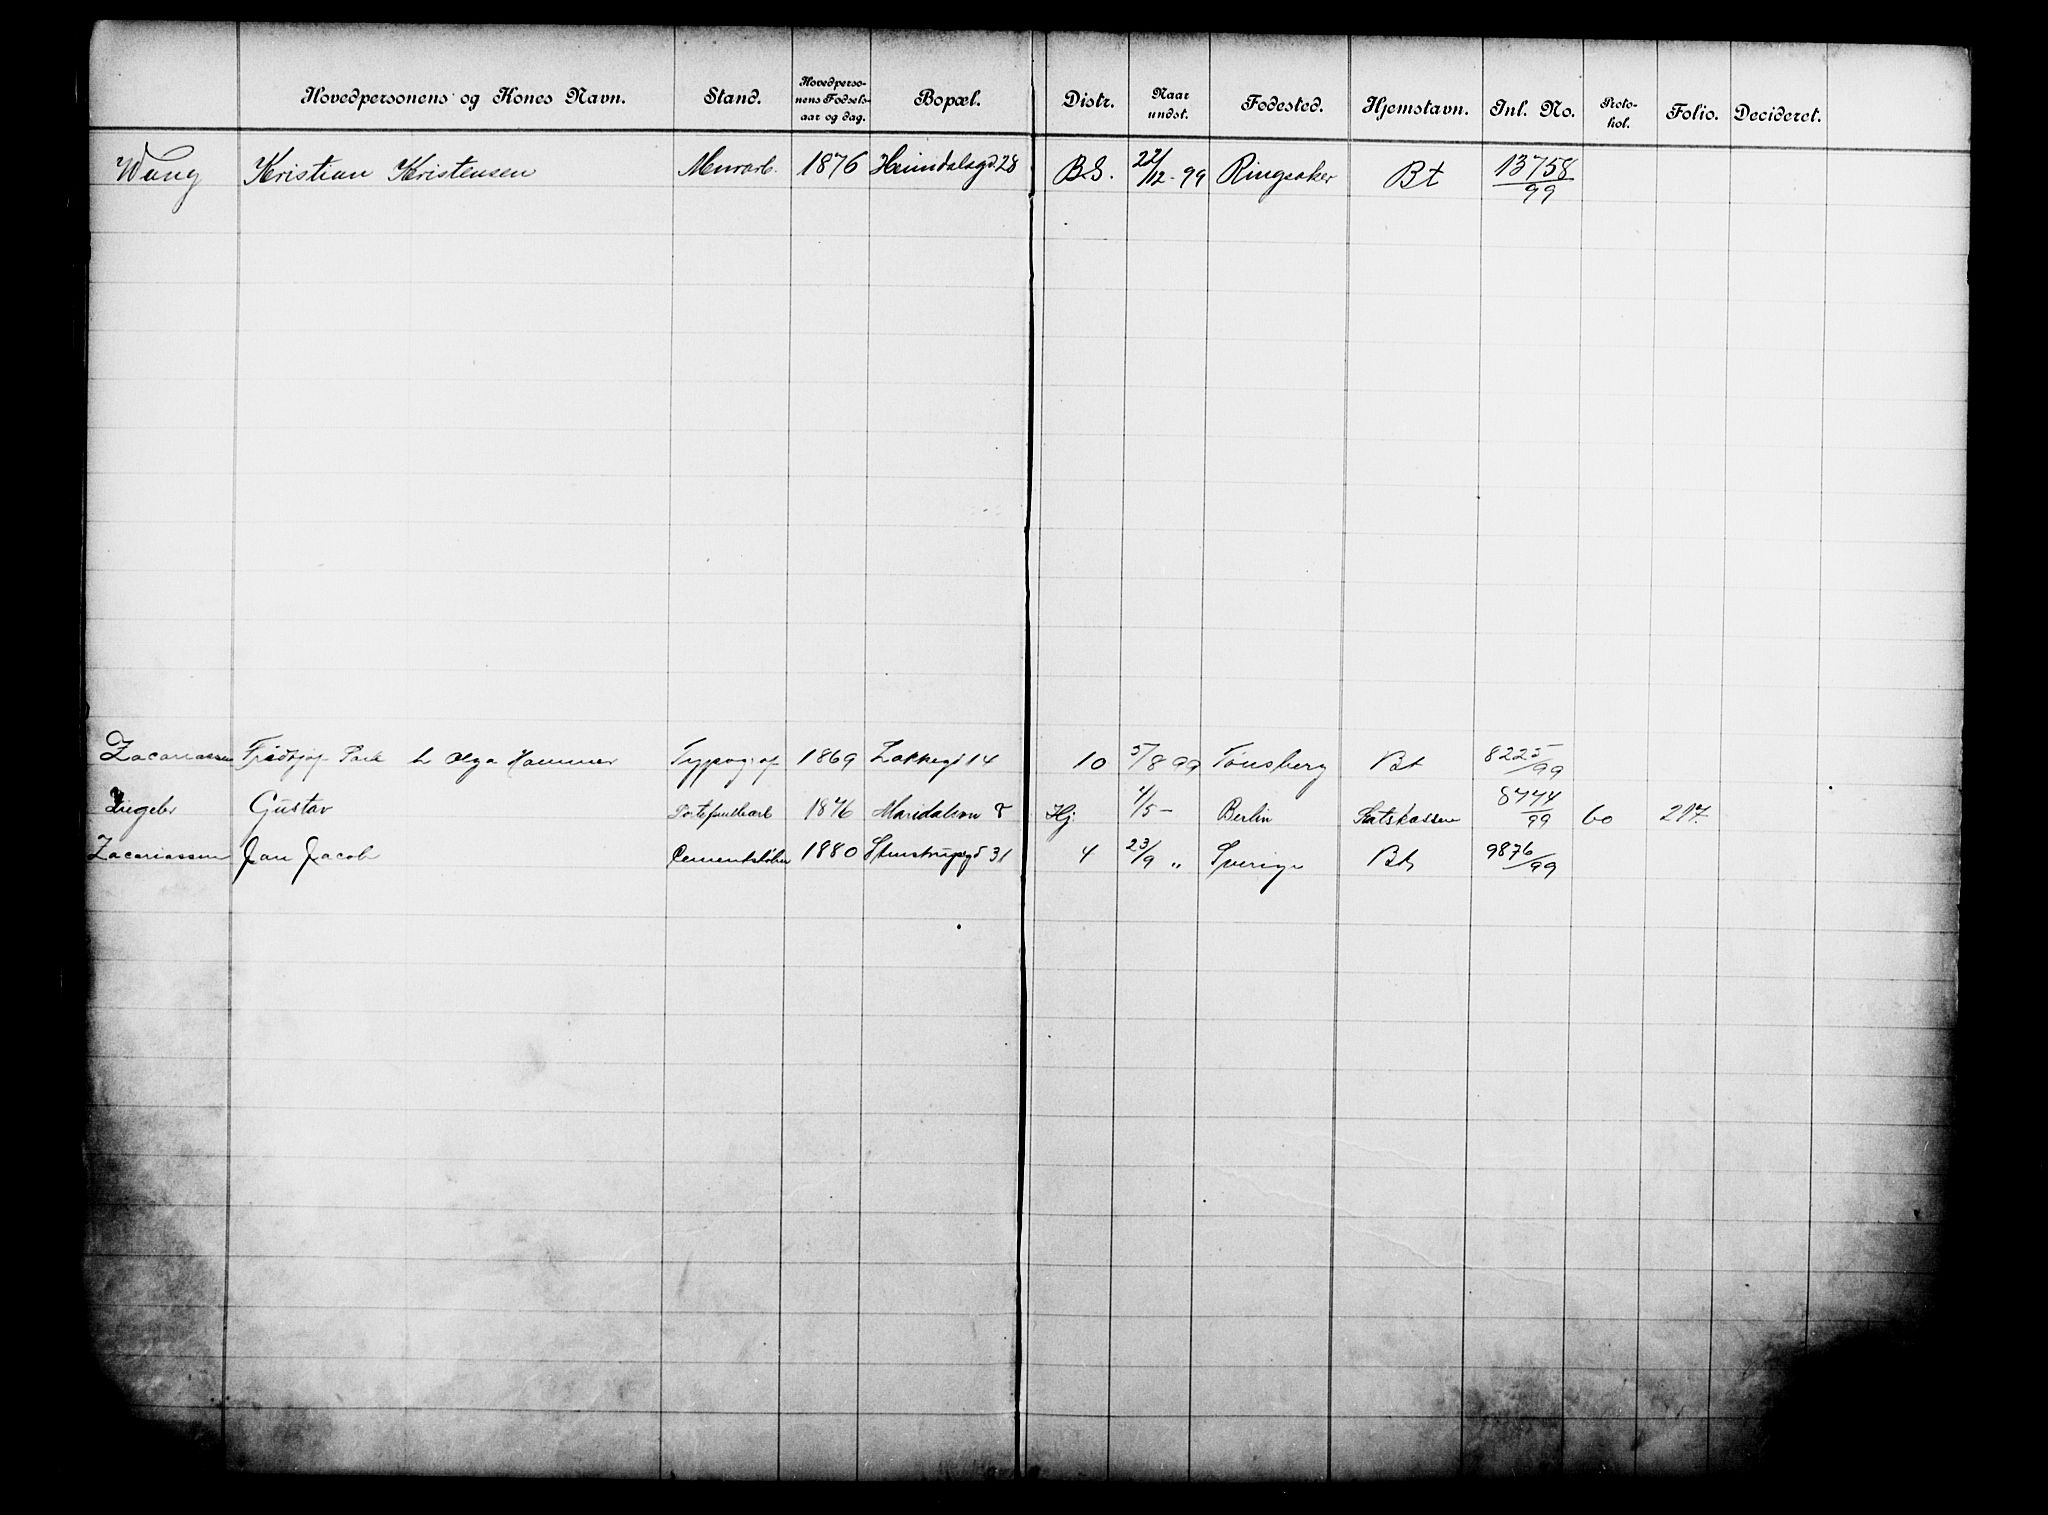 Hovedpersonens og Kones Navn. Stand. Hovedpersonens Fødselsaar og dag. Bopæl. Distr. Naar undst. Fødested. Hjemstavn. Inl. No. Protokol. Folio. Decideret.
Wang Kristian Kristensen Murarb. 1876 Heimdalsgd 28 B.S. 22/12-99 Ringsaker Bt 13758/99
Zacariassen Fridtjof Olga Hammer Typograf 1869 Zakkegt 14 10 5/8 99 Tønsberg Bt 8225/99
Gustav 1876 Maridalsvn 8 Hj. /5 - Berlin Statskassen 8774/99 60 217.
Zacariassen Jan Jacob 1880 31 4 23/9 " Sverige Bt 9876/99